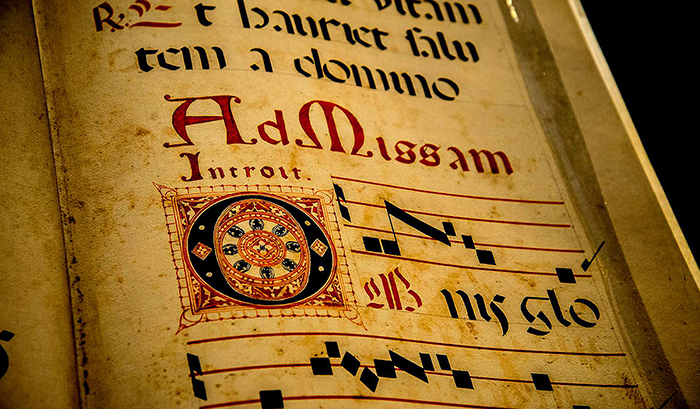 vitam
R. Et hauriet salu
tem a domino
Ad Missam
Introit.
OMnis glo